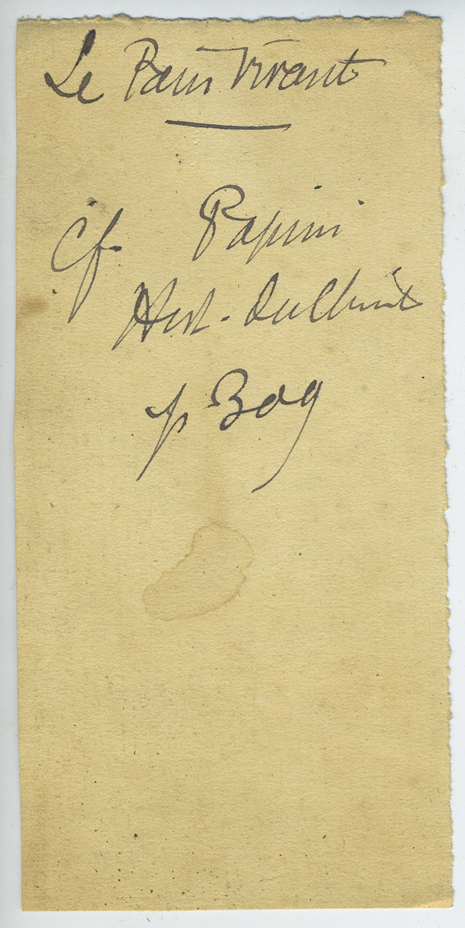 Le Pain Vivant
cf. Papini
Hist. du Christ
p 309